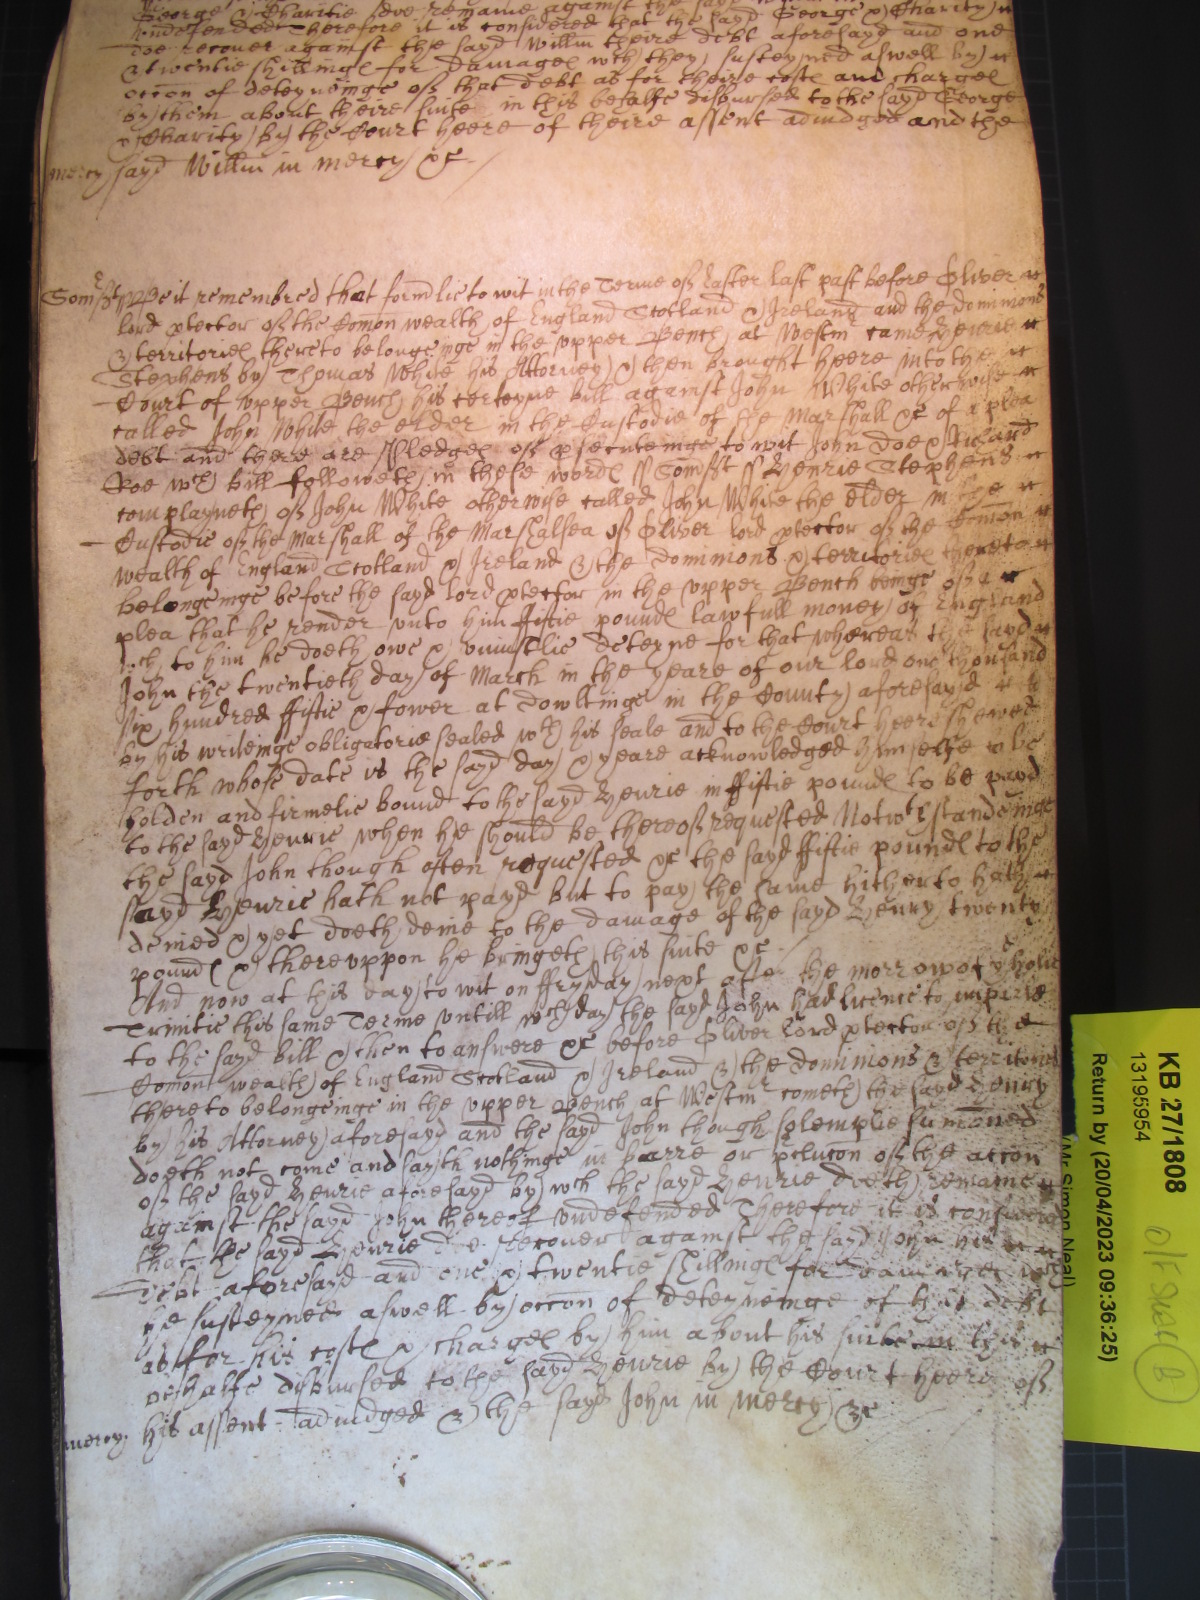 George & Charitie doe remaine against the sayd
undefended Therefore it is considered that the sayd George & Charity
doe recover against the sayd Willm theire debt aforesayd and one
& twentie shillinges for Damages wch they susteyned aswell by
occon of deteyneinge of that debt as for theire costes and charges
by them about theire suite in this behalfe disbursed to the sayd George
& Charity by the Court heere of theire assent adiudged and the
mercy sayd Willm in mercy &c
Somst Be it remembred that formlie to wit in the Terme of Easter last past before Oliver
lord ptector of the Comon wealth of England Scotland & Ireland and the dominions
& territories thereto belongeinge in the vpper Bench at Westm came Henrie
Stephens by Thomas White his Attorney & then brought heere into the
Court of vpper Bench his certeyne bill against John White otherwise
called John White the elder in the Custodie of the Marshall &c of a plea
debt and there are Pledges of psecuteinge to wit John Doe & Richard
Roe wch bill followeth in these wordes ss Somst ss Henrie Stephens
complayneth of John White otherwise called John White the elder in the
Custodie of the Marshall of the Marshalsea of Oliver lord ptector of the Comon
wealth of England Scotland & Ireland & the dominions & territories thereto
belongeinge before the sayd lord ptector in the vpper Bench beinge of a
plea that he render vnto him ffiftie poundes lawfull money of England
wch to him he doeth owe & vniustlie deteyne for that whereas the sayd
John the twentieth day of March in the yeare of our lord one thousand
six hundred ffiftie & fower at Dowltinge in the County aforesayd
by his writeinge obligatorie sealed wth his seale and to the Court heere shewed
forth whose date is the sayd day & yeare acknowledged himselfe to be
holden and firmelie bound to the sayd Henrie in ffiftie poundes to be payd
to the sayd Henrie when he should be thereof requested Notwthstandeinge
the sayd John though often requested &c the sayd ffiftie poundes to the
sayd Henrie hath not payd but to pay the same hitherto hath
denied & yet doeth denie to the damage of the sayd Henry twenty
poundes & therevppon he bringeth this suite &c
And now at this day to wit on ffryday next after the morrow of ye holie
Trinitie this same Terme vntill wch day the sayd John had licence to imparle
to the sayd bill & then to answere &c before Oliver Lord ptector of the
Comon wealth of England Scotland & Ireland & the dominions & territories
thereto belongeinge in the vpper Bench at Westmr cometh the sayd Henry
by his Attorney aforesayd and the sayd John though solemplie sumoned
doeth not come and sayth nothinge in barre or pclucon of the accon
of the sayd Henrie aforesayd by wch the sayd Henrie doeth remaine
against the sayd John thereof vndefended Therefore it is considered
that the sayd Henrie doe recover against the sayd John his
debt aforesayd and one & twentie shillinges for damages wch
he susteyned aswell by occon of deteyneinge of that debt
as for his costes & charges by him about his suite in this
behalfe disbursed to the sayd Henrie by the Court heere of
mercy his assent adiudged & the sayd John in mercy &c
KB 27/1808
13195954
Return by (20/04/2023 09:36:25)
(Mr Simon Neal)